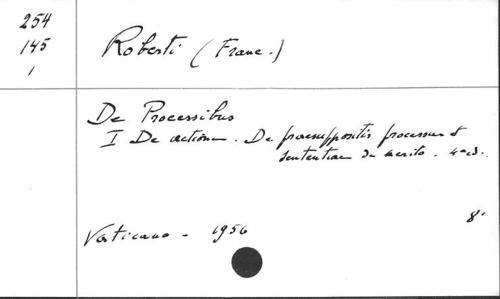 254
145
1
Roberti (Franc.)
De Processibus
I De actione. De praesuppositis processus et
sententiae de merito. 4a ed.
Vaticano - 1956
8°